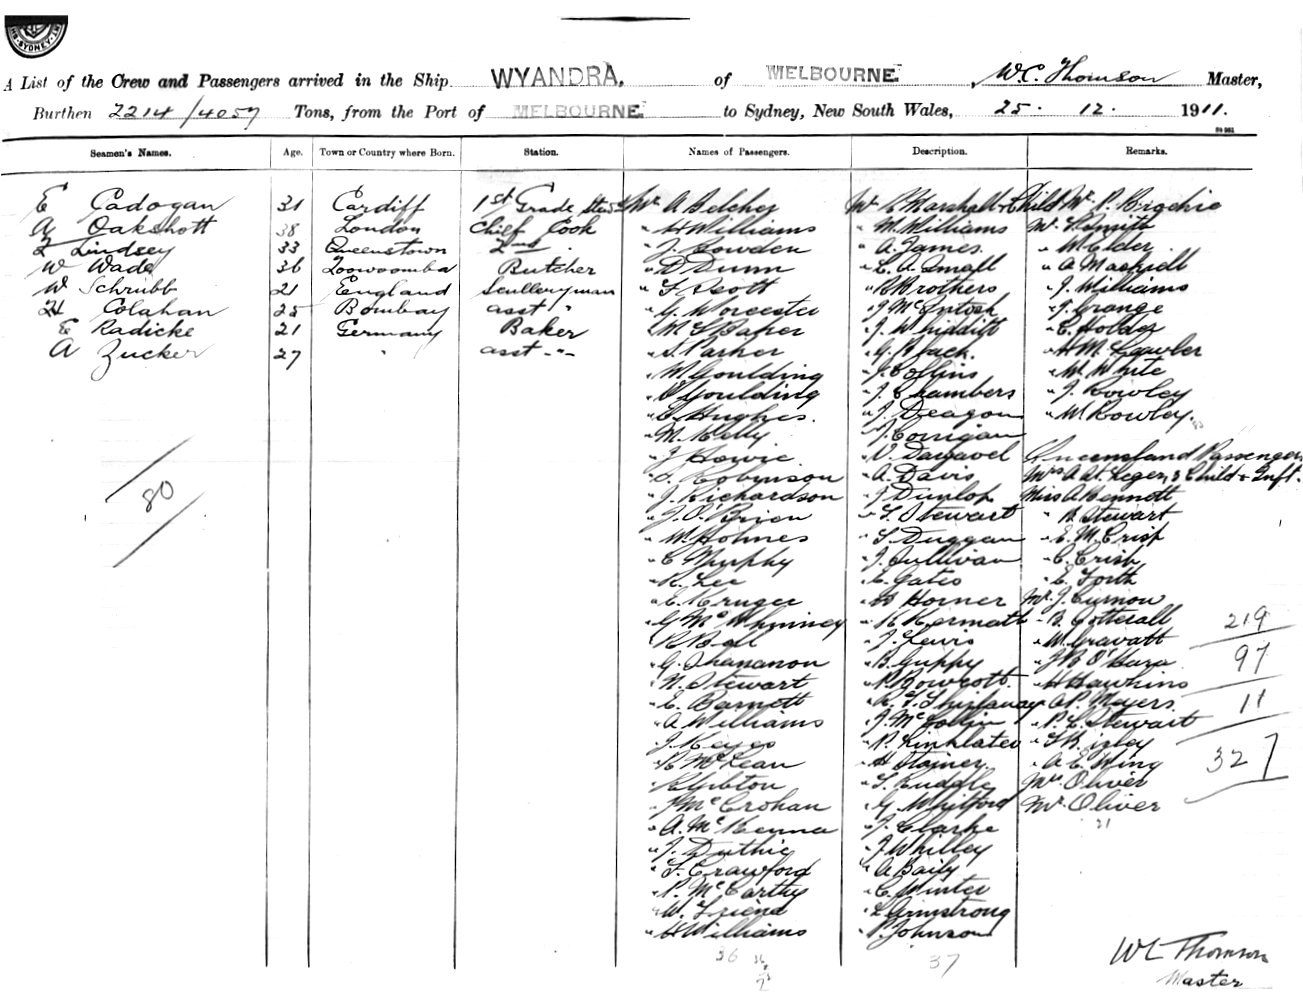 SYDNEY
A List of the Crew and Passengers arrived in the Ship WYANDRA, of MELBOURNE, W.C. Thomson Master,
Burthen 2214/4057 Tons, from the Port of MELBOURNE to Sydney, New South Wales, 25. 12. 1911.
Seamen's Names. Age. Town or Country where Born. Station. Names of Passengers. Description. Remarks.
E Cadogan 31 Cardiff 1st Grade Stew
A Oakshott 38 London Chief Cook
Z Lindsey 33 Queenstown 2nd "
W Wade 36 Toowoomba Butcher
W Schrubb 21 England Sculleryman
H Colahan 25 Bombay asst "
E Radicke 21 Germany Baker
A Zucker 27 " asst "
80
Mr A Belcher
" H Williams
" J. Cowden
" D Dunn
" F Scott
" G. Worcester
" M S Baker
" S. Parker
" M Goulding
" Goulding
" C. Hughes.
" M. Kelly
" J Howie
" Robinson
" J. Richardson
" J. O'Brien
" W. Holmes
" C Murphy
" R. Lee
" E. Kruger
" G McWhinney
" R Bel
" G. Shananon
" N. Stewart
" E. Barnett
" A Williams
" J. Keyes
" McLean
" Gibton
" J McCrohan
" A. McKenna
" J. Duthie
" F. Crawford
" P. McCarthy
" W. Friend
" H Williams
36
Mr Marshall & Child
" M. Williams
" A. James.
" E. A. Small
" Brothers
" J McIntosh
" J. Whidditt
" G. Black.
" J. Collins
" J. Chambers
" J. Deagon
" J. Corrigan
" V. Dargavel
" A. Davis
" J Dunlop
" F. Stewart
" S. Duggan
" J. Sullivan
" E. Gates
" Horner
" K Kermath
" J. Lewis
" B. Guppy
" P. Bowcott.
" R. F. Shipaway
" J. McCollin
" P. Linklater
" H Stainer.
" F. Ruddle
" G. Whitford
" J. Clarke
" J Whilley
" A Baily
" C. Winter
" L Armstrong
" P. Johnson
37
Mr P.
Mr F Smith
" W. Elder
" A Maskiell
" J. Williams
" J. Grange
" E. Holder
" H M. Lawler
" W. White
" J. Rowley
" W. Rowley.
Queensland Passengers
Mrs A St. Leger, 3 Child & Inft.
Miss A Bennett
" B. Stewart
" E. M. Crisp
" C. Crisp
" E. Forth
Mr. J. Curnow
" B. Cotterall 219
" W. Gravatt
" J B O'Hara 97
" H Hawkins
" A P. Meyers. 11
" P. C. Stewart
" Bigley
" A E Wing 327
Mrs Oliver
Mr. Oliver
21
W C Thomson
Master